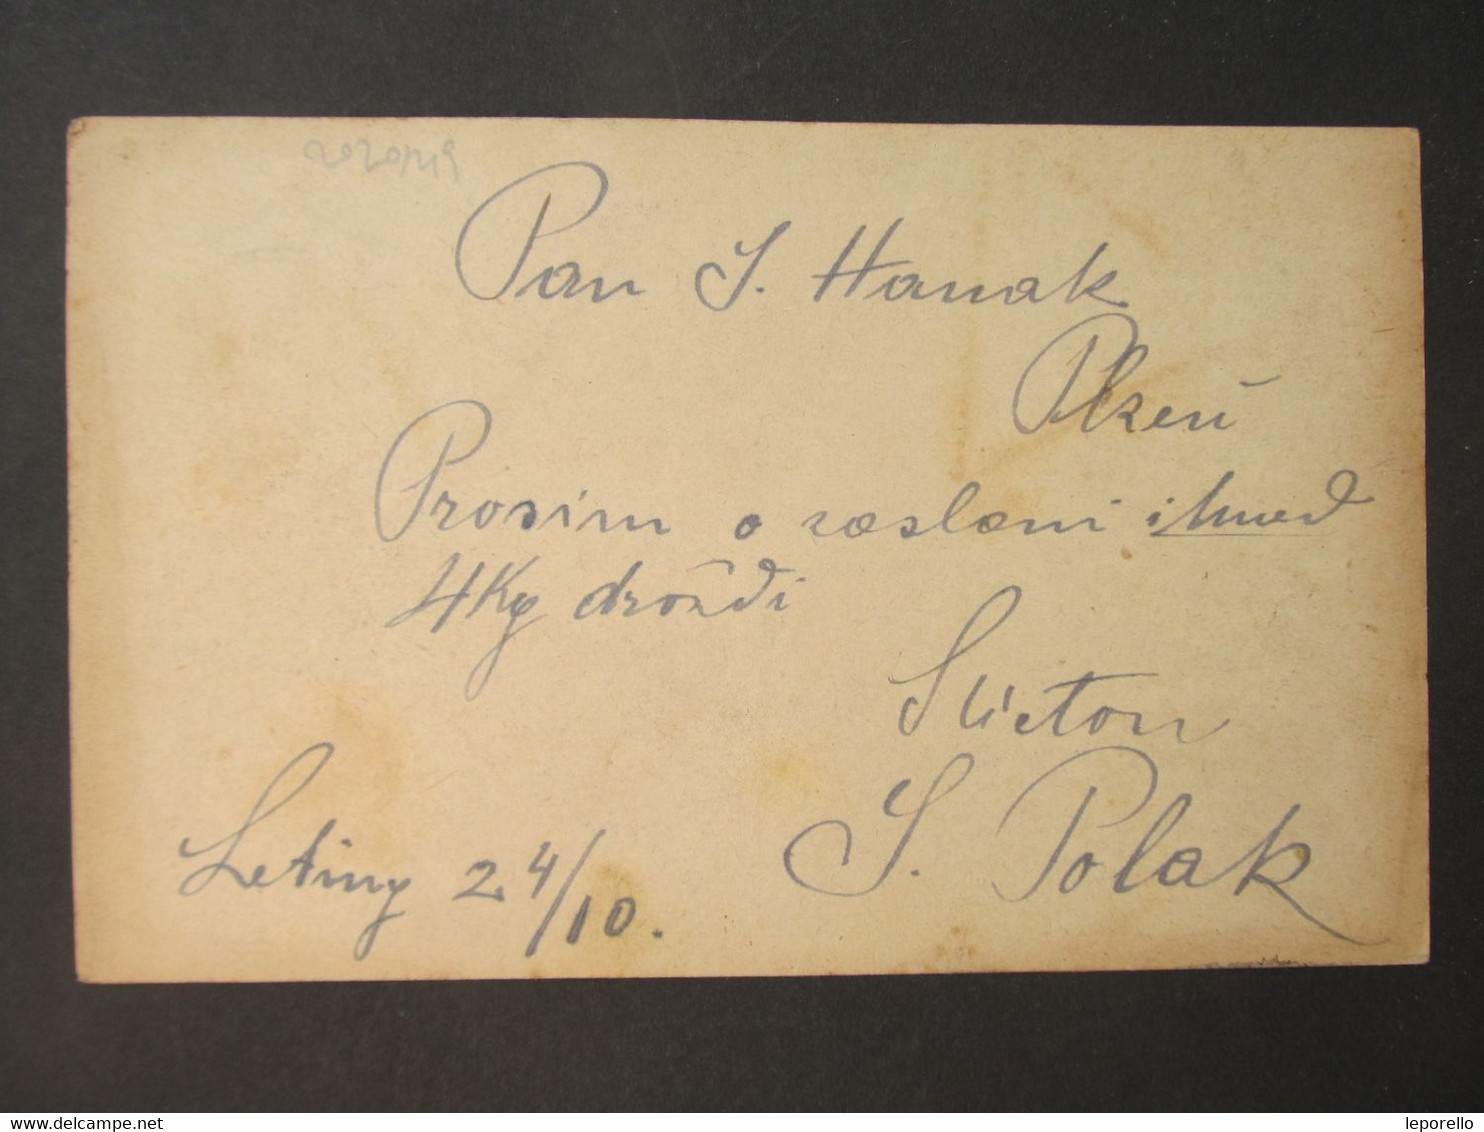 2020/219
Pan J. Hanak
Plzeň
Prosim o zaslani ihned
4Kg droždi
S úctou
J. Polak
Letiny 24/10.
leporello